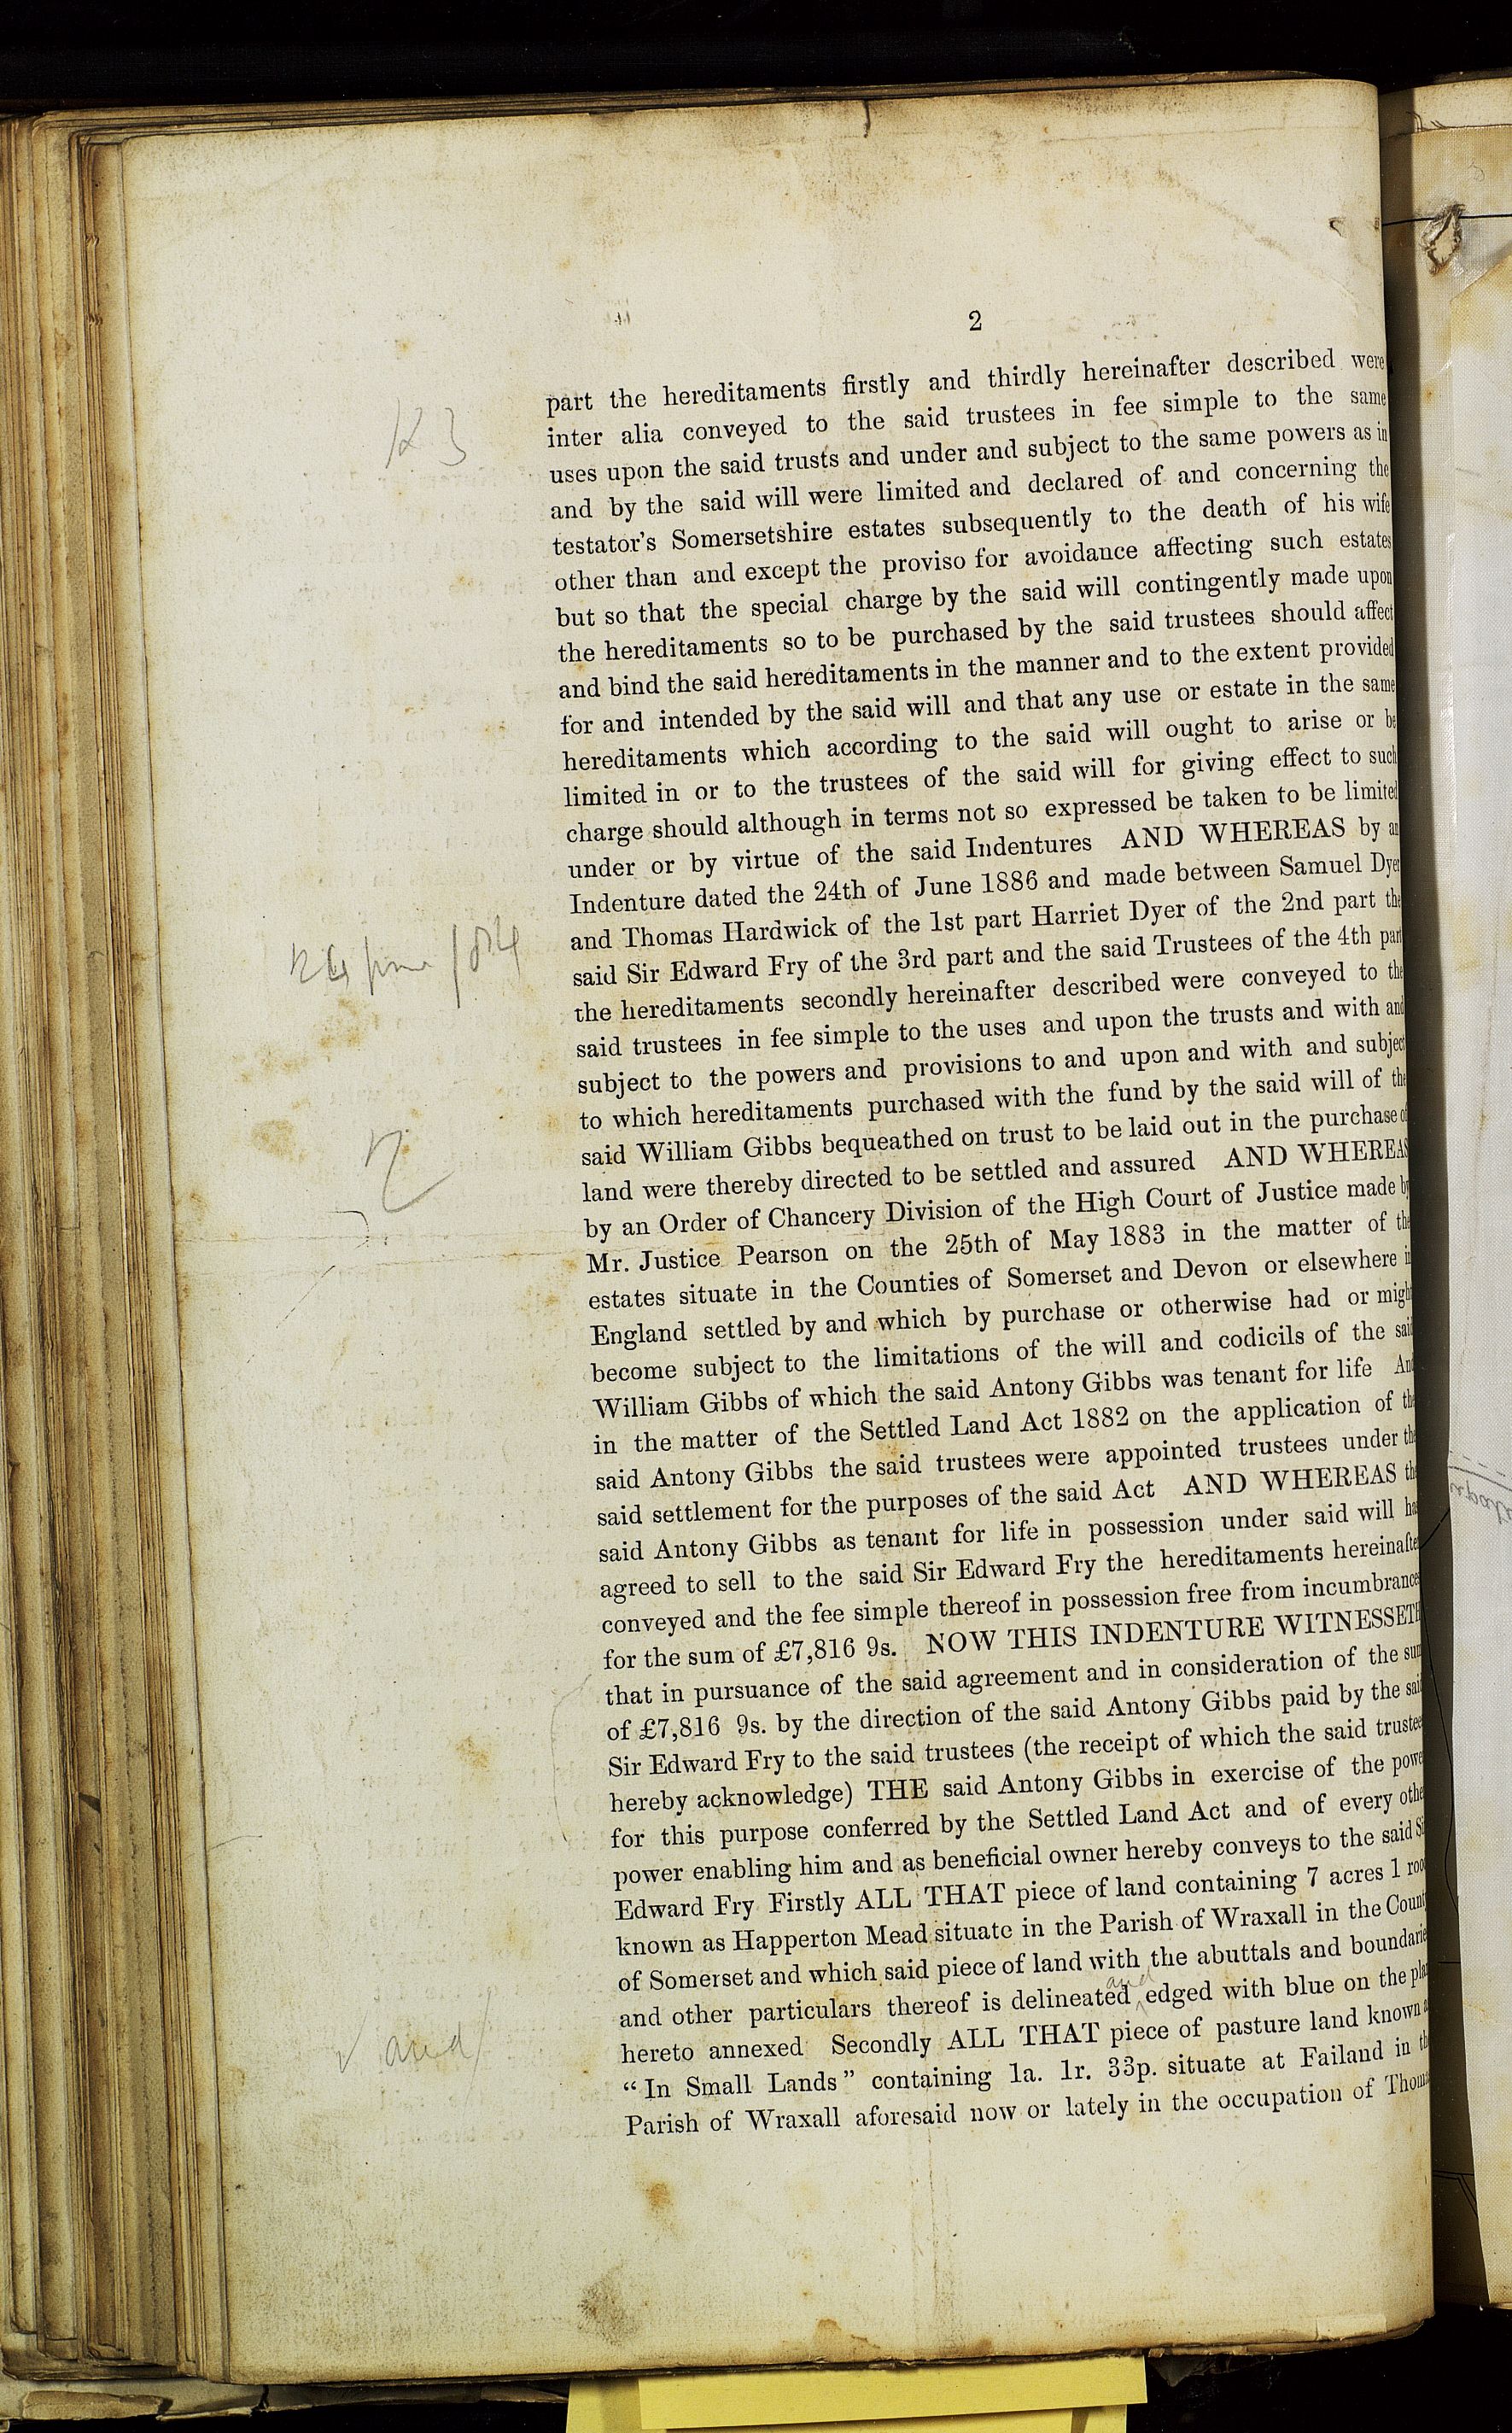 2
part the hereditaments firstly and thirdly hereinafter described were
inter alia conveyed to the said trustees in fee simple to the same
uses upon the said trusts and under and subject to the same powers as in
and by the said will were limited and declared of and concerning the
testator's Somersetshire estates subsequently to the death of his wife
other than and except the proviso for avoidance affecting such estates
but so that the special charge by the said will contingently made upon
the hereditaments so to be purchased by the said trustees should affect
and bind the said hereditaments in the manner and to the extent provided
for and intended by the said will and that any use or estate in the same
hereditaments which according to the said will ought to arise or be
limited in or to the trustees of the said will for giving effect to such
charge should although in terms not so expressed be taken to be limited
under or by virtue of the said Indentures AND WHEREAS by an
Indenture dated the 24th of June 1886 and made between Samuel Dyer
and Thomas Hardwick of the 1st part Harriet Dyer of the 2nd part the
said Sir Edward Fry of the 3rd part and the said Trustees of the 4th part
the hereditaments secondly hereinafter described were conveyed to the
said trustees in fee simple to the uses and upon the trusts and with and
subject to the powers and provisions to and upon and with and subject
to which hereditaments purchased with the fund by the said will of the
said William Gibbs bequeathed on trust to be laid out in the purchase of
land were thereby directed to be settled and assured AND WHEREAS
by an Order of Chancery Division of the High Court of Justice made by
Mr. Justice Pearson on the 25th of May 1883 in the matter of the
estates situate in the Counties of Somerset and Devon or elsewhere in
England settled by and which by purchase or otherwise had or might
become subject to the limitations of the will and codicils of the said
William Gibbs of which the said Antony Gibbs was tenant for life And
in the matter of the Settled Land Act 1882 on the application of the
said Antony Gibbs the said trustees were appointed trustees under the
said settlement for the purposes of the said Act AND WHEREAS the
said Antony Gibbs as tenant for life in possession under said will has
agreed to sell to the said Sir Edward Fry the hereditaments hereinafter
conveyed and the fee simple thereof in possession free from incumbrances
for the sum of £7,816 9s. NOW THIS INDENTURE WITNESSETH
that in pursuance of the said agreement and in consideration of the sum
of £7,816 9s. by the direction of the said Antony Gibbs paid by the said
Sir Edward Fry to the said trustees (the receipt of which the said trustees
hereby acknowledge) THE said Antony Gibbs in exercise of the power
for this purpose conferred by the Settled Land Act and of every other
power enabling him and as beneficial owner hereby conveys to the said Sir
Edward Fry Firstly ALL THAT piece of land containing 7 acres 1 rood
known as Happerton Mead situate in the Parish of Wraxall in the County
of Somerset and which said piece of land with the abuttals and boundaries
and other particulars thereof is delineated and edged with blue on the plan
hereto annexed Secondly ALL THAT piece of pasture land known as
and
"In Small Lands" containing 1a. 1r. 33p. situate at Failand in the
Parish of Wraxall aforesaid now or lately in the occupation of Thomas